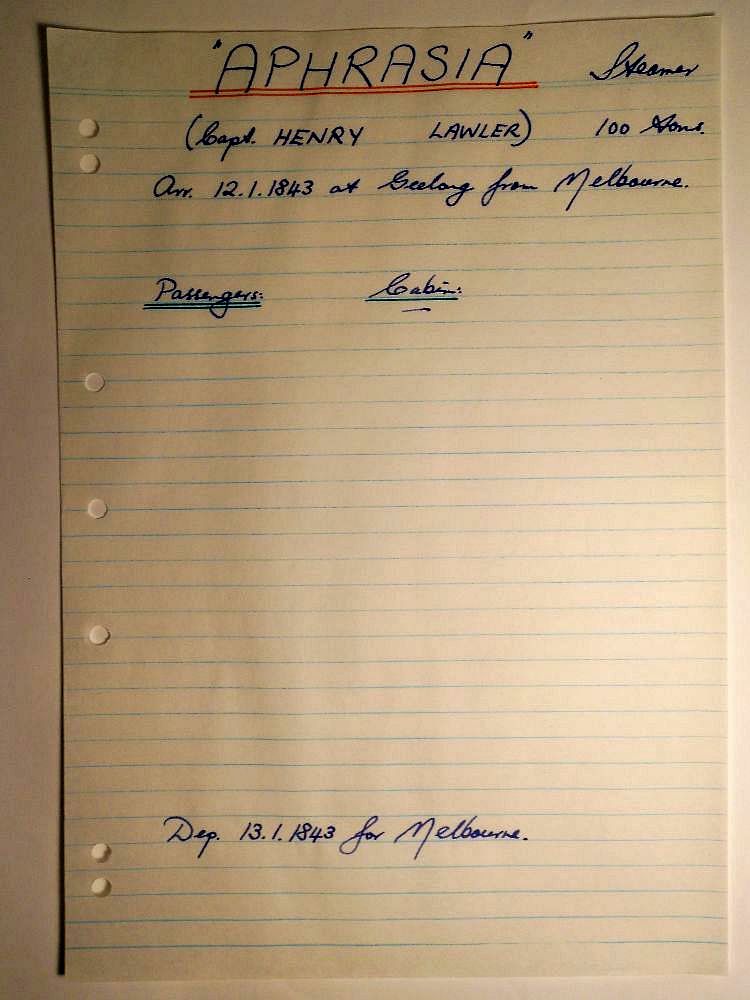 "APHRASIA" Steamer
(Capt. HENRY LAWLER) 100 Tons.
Arr. 12.1.1843 at Geelong from Melbourne.
Passengers: Cabin:
Dep. 13.1.1843 for Melbourne.